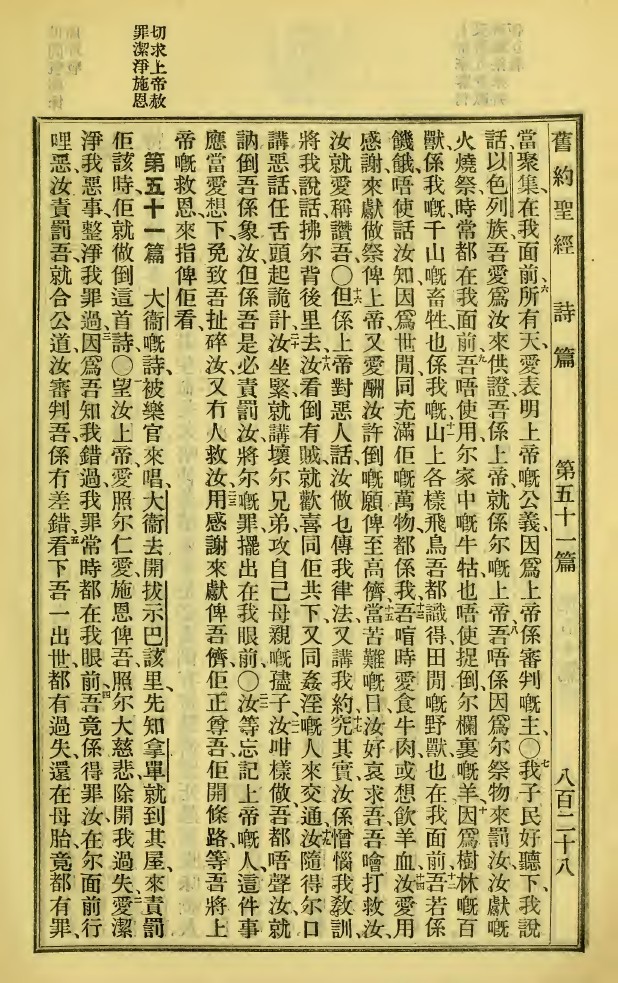 舊約聖經　詩篇　第五十一篇　八百二十八
切求上帝赦
罪潔淨施恩
當聚集在我面前、六所有天、愛表明上帝嘅公義、因爲上帝係審判嘅主、〇七我子民好聽下、我說
話、以色列族、吾愛爲汝來供證、吾係上帝、就係尔嘅上帝、八吾唔係因爲尔祭物來罰汝、汝獻嘅
火燒祭時常都在我面前、九吾唔使用尔家中嘅牛牯、也唔使捉倒尔欄裏嘅羊、十因爲樹林嘅百
獸係我嘅、千山嘅畜牲也係我嘅、十一山上各樣飛鳥吾都識得、田閒嘅野獸也在我面前、十二吾若係
饑餓、唔使話汝知、因爲世閒同充滿佢嘅萬物都係我、十三吾喧時愛食牛肉、或想飲羊血、十四汝愛用
感謝來獻做祭俾上帝、又愛酬汝許倒嘅願俾至高儕、十五當苦難嘅日、汝好哀求吾、吾噲打救汝、
汝就愛稱讚吾、〇十六但係上帝對惡人話、汝做乜傳我律法、又講我約、十七究其實汝係憎惱我教訓、
將我說話拂尔背後里去、十八汝看倒有賊、就歡喜同佢共下、又同姦淫嘅人來交通、十九汝隨得尔口
講惡話、任舌頭起詭計、二十汝坐緊就講壞尔兄弟、攻自己母親嘅孻子、二一汝咁樣做、吾都唔聲、汝就
訥倒吾係象汝、但係吾是必責罰汝、將尔嘅罪擺出在我眼前、〇二二汝等忘記上帝嘅人、這件事
應當愛想下、免致吾扯碎汝、又冇人救汝、二三用感謝來獻俾吾儕、佢正尊吾、佢開條路等吾將上
帝嘅救恩、來指俾佢看、
第五十一篇　大衞嘅詩、被樂官來唱、大衞去開拔示巴該里、先知拿單就到其屋、來責罰
佢、該時佢就做倒這首詩、〇一望汝上帝、愛照尔仁愛、施恩俾吾、照尔大慈悲、除開我過失、二愛潔
淨我惡事、整淨我罪過、三因爲吾知我錯過、我罪常時都在我眼前、四吾竟係得罪汝、在尔面前行
哩惡、汝責罰吾就合公道、汝審判吾、係有差錯、五看下吾一出世、都有過失、還在母胎、竟都有罪、